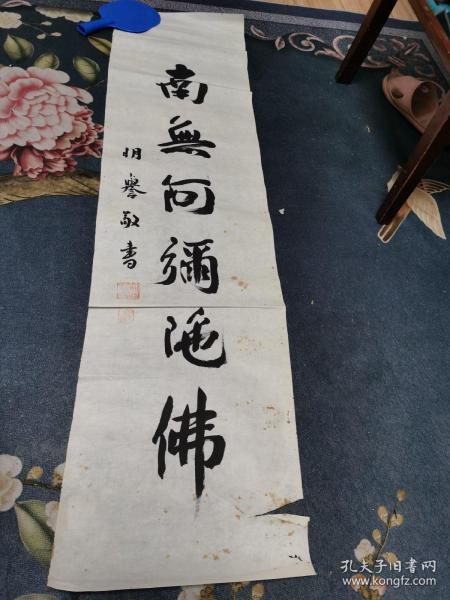 南無阿彌陀佛
明譽敬書
孔夫子旧书网
www.kongfz.com